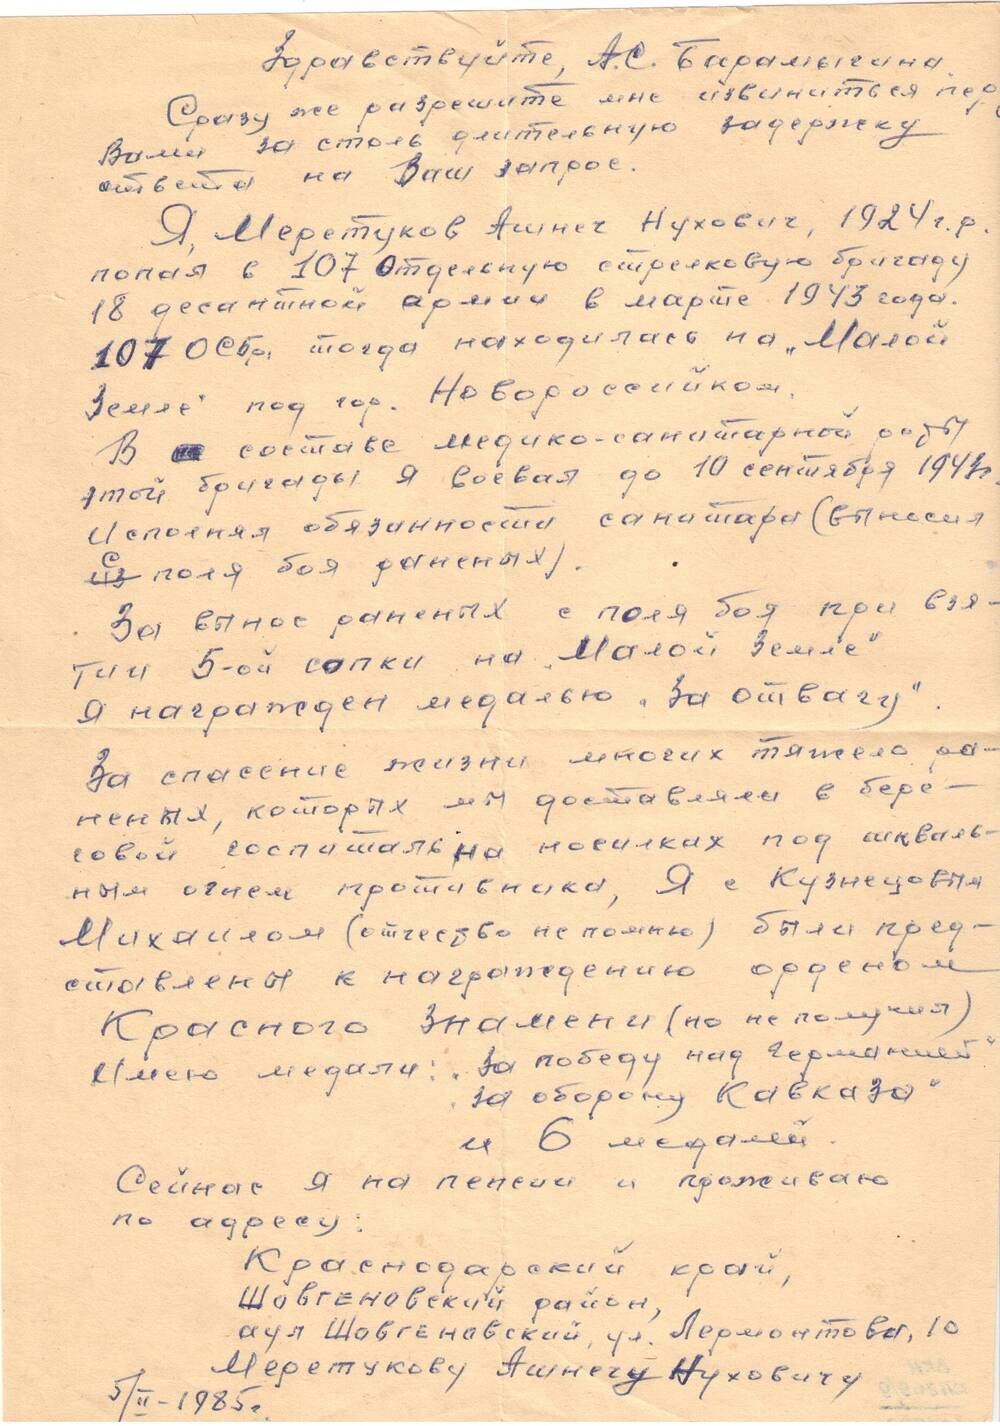 Здравствуйте, А.С. Барамыгина
Сразу же разрешите мне извиниться пер
Вами за столь длительную задержку
ответа на Ваш запрос.
Я, Меретуков Ашнеч Нухович, 1924 г.р.
попал в 107 отдельную стрелковую бригаду
18 десантной армии в марте 1943 года.
107 ОСБр, тогда находилась на „Малой
Земле" под гор. Новороссийком.
В составе медико-санитарной роты
этой бригады я воевал до 10 сентября 1943г.
Исполнял обязанности санитара (выносил
с поля боя раненых).
За вынос раненых с поля боя при взя-
тии 5-ой сопки на „Малой Земле"
я награжден медалью „За отвагу".
За спасение жизни многих тяжело ра-
неных, которых мы доставляли в бере-
говой госпиталь на носилках под шкваль-
ным огнем противника, я с Кузнецовым
Михаилом (отчество не помню) были пред-
ставлены к награждению орденом
Красного Знамени (но не получил)
Имею медали: „За победу над Германией"
„За оборону Кавказа"
и 6 медалей.
Сейчас я на пенсии и проживаю
по адресу:
Краснодарский край,
Шовгеновский район,
аул Шовгеновский, ул. Лермонтова, 10
Меретукову Ашнечу Нуховичу
5/II-1985г.